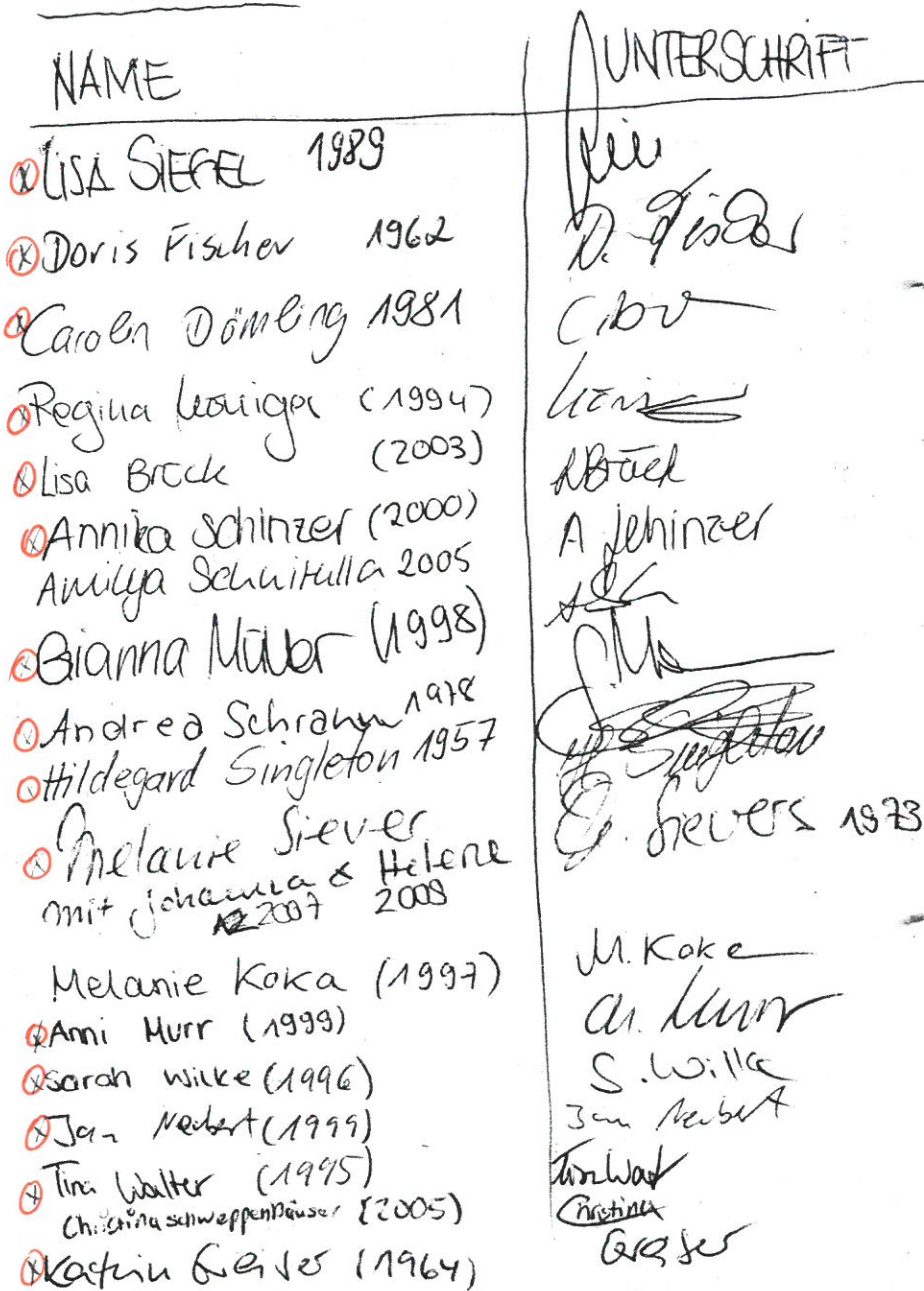 NAME UNTERSCHRIFT
x LISA SIEGEL 1989
x Doris Fischer 1962 D. Fischer
x Carolin Dömling 1981
x Regina (1994)
x Lisa Brück (2003) LBrück
x Annika Schinzer (2000) A Schinzer
2005
x Gianna Müller (1998)
x Andrea Schramm 1978
x Hildegard Singleton 1957 Singleton
x Melanie Siever Sievers 1973
mit Johanna & Helene
2007 2009
Melanie Koka (1997) M. Koka
x Anni Murr (1999) Murr
x Sarah Wilke (1996) S. Wilke
x Jan Neubert (1999) Jan Neubert
x Tina Walter (1995)
Christina Schweppenhäuser (2005) Christina
x Katrin Greiser (1964) Greiser